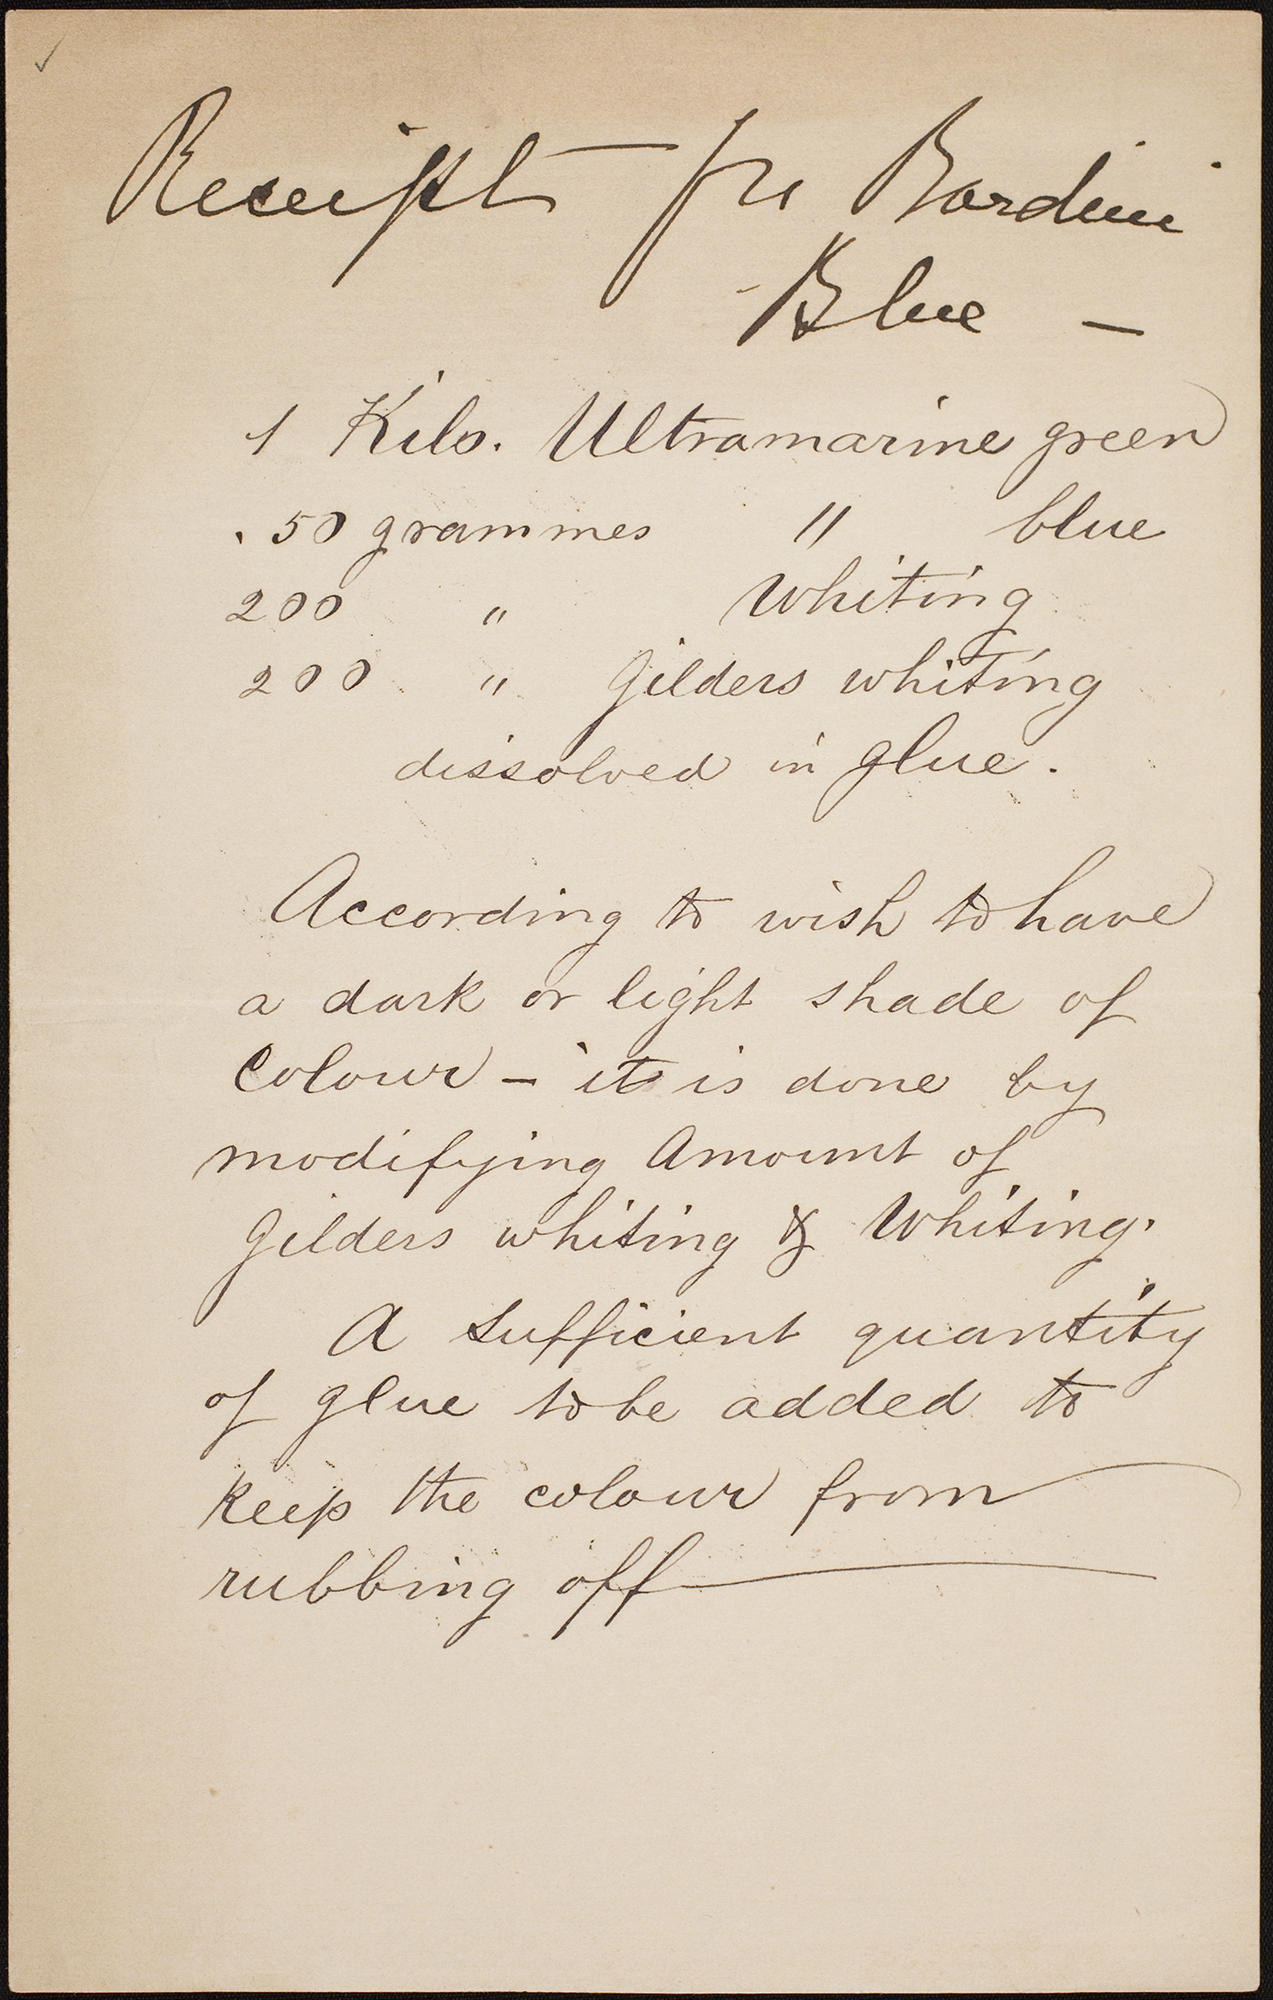 Receipt for Bardini
Blue —
1 Kilo. Ultramarine green
. 50 grammes " blue
200 " Whiting
200 " Gilders whiting
dissolved in glue.
According to wish to have
a dark or light shade of
Colour – it is done by
modifying Amount of
Gilders whiting & Whiting.
A sufficient quantity
of glue to be added to
keep the colour from
rubbing off —